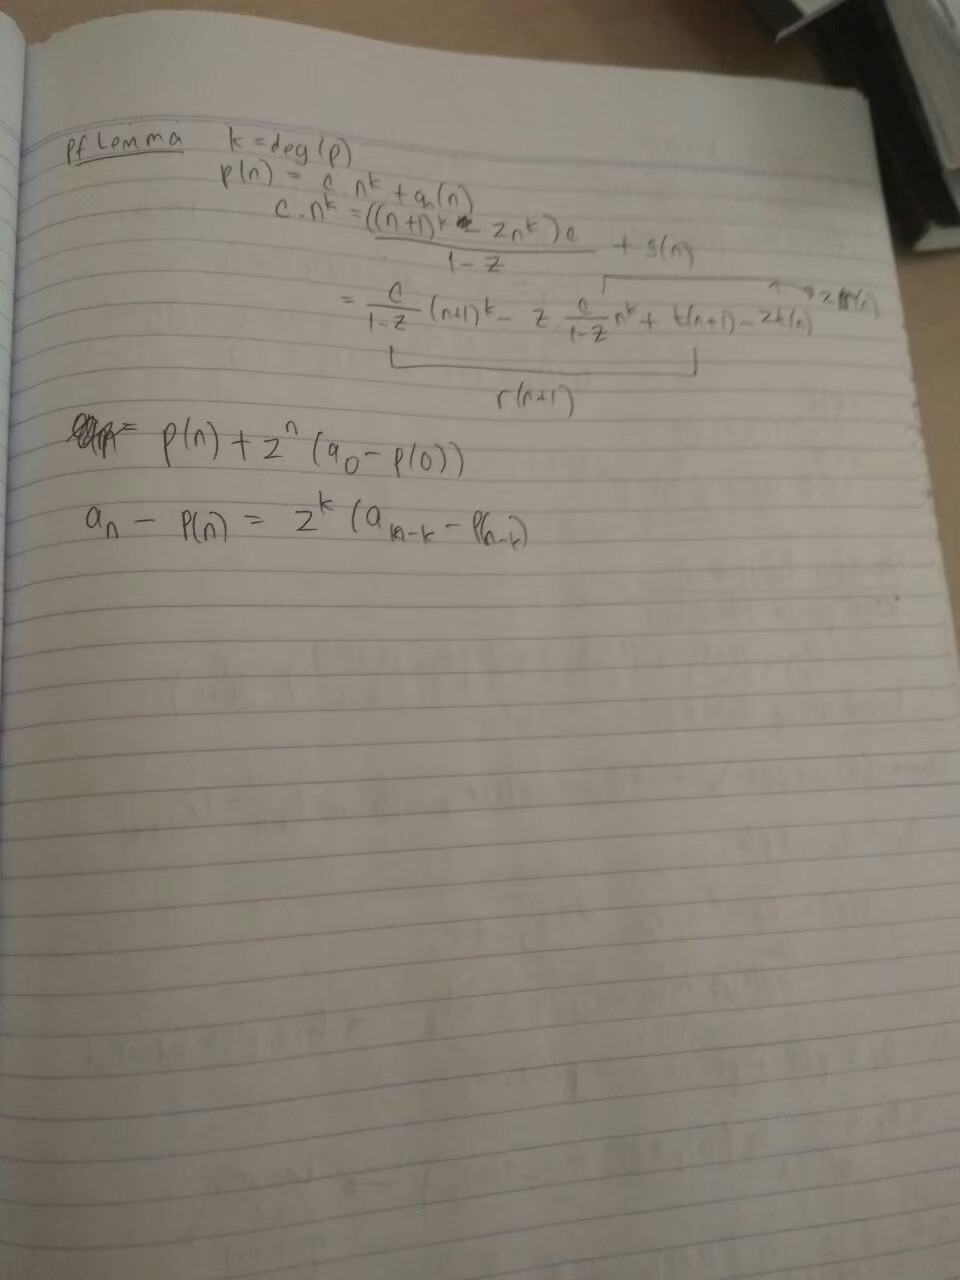 Pf Lemma k = deg(p)
p(n) = c n^k + q(n)
c . n^k = ((n+1)^k - z n^k) c / (1-z) + s(n)
= c/(1-z) (n+1)^k - z . c/(1-z) n^k + t(n+1) - z t(n)
r(n+1)
= p(n) + z^n (a_0 - p(0))
a_n - p(n) = z^k (a_{n-k} - p(n-k))